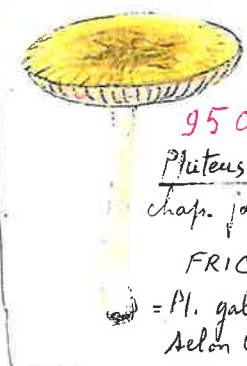 95
Pluteus
chap.
FRIC
= Pl. gal
selon